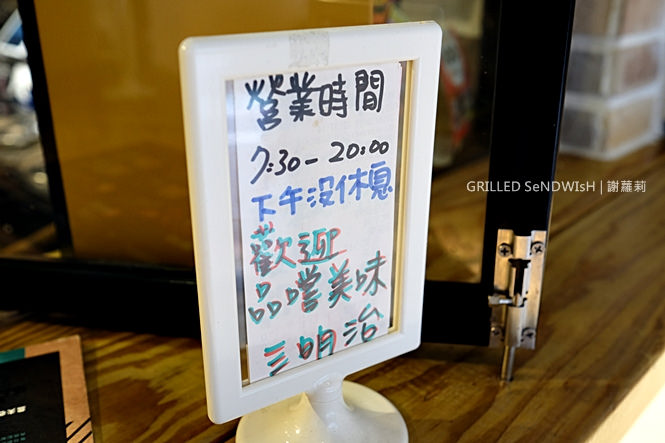 營業時間
7:30-20:00
下午沒休息
歡迎
品嚐美味
三明治
GRILLED SeNDWIsH | 謝蘿莉